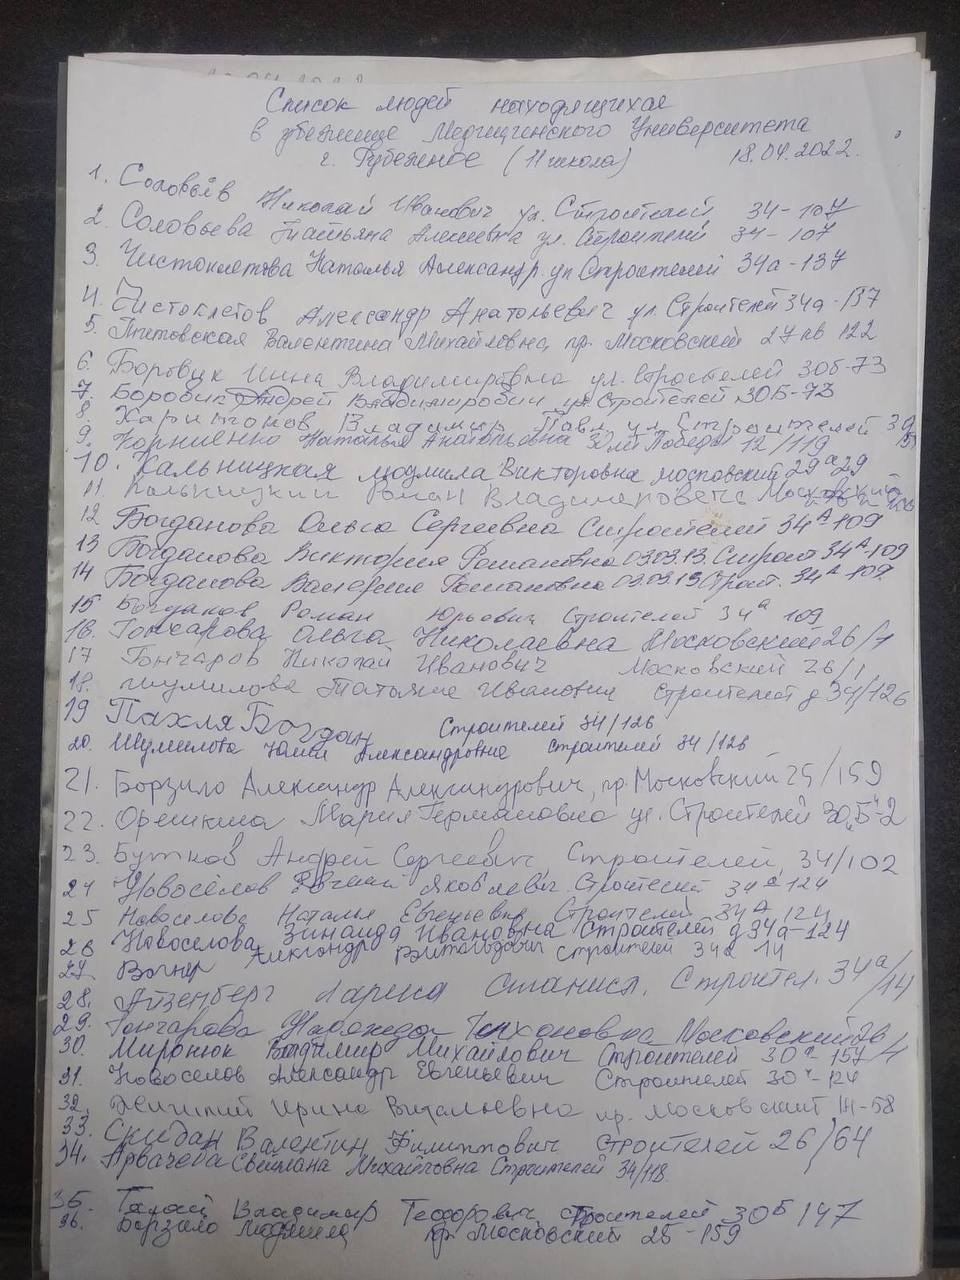 Список людей находящихся
в убежище Медицинского Университета
г. Рубежное (11 школа) 18.04.2022.
1. Соловьёв Николай Иванович ул. Строителей 34-107
2. Соловьева Татьяна Алексеевна ул. Строителей 34-107
3. Чистоклетова Наталья Александр. ул Строителей 34а-137
4. Чистоклетов Александр Анатольевич ул. Строителей 34а-137
5. Валентина Михайловна, пр. Московский 27 кв 122
6. Боровик Инна Владимировна ул. Строителей 30б-73
7. Боровик Андрей Владимирович ул Строителей 30Б-73
8. Харитонов Владимир Павл. ул. Строителей
9. Корниенко Наталья Анатольевна 30 лет Победы 12/119
10. Кальницкая Людмила Викторовна Московский 29а 29
11. Кальницкий Роман Владимирович Московский
12 Богданова Ольга Сергеевна Строителей 34А 109
13 Богданова Виктория Романовна 03.03.13. Строит 34А-109
14 Богданова Валерия Романовна 03.03.13 Строит. 34А-109
15 Богданов Роман Юрьевич Строителей 34а 109
16. Гончарова Ольга Николаевна Московский 26/1
17 Гончаров Николай Иванович Московский 26/1
18. Шумилова Татьяна Ивановна Строителей д 34/126
19 Пахля Богдан Строителей 34/126
20. Шумилова Юлия Александровна Строителей 34/126
21. Борзило Александр Александрович, пр. Московский 25/159
22. Орешкина Мария Германовна ул. Строителей 30„Б"-2
23. Бутков Андрей Сергеевич, Строителей, 34/102
24 Новосёлов Евгений Яковлевич. Строителей 34а 124
25 Новоселова Наталья Евгеньевна Строителей 34А 124
26 Новоселова Зинаида Ивановна Строителей д 34а-124
27. Вагнер Александр Витольдович Строителей 34а 14
28. Айзенберг Лариса Станисл. Строител. 34а/14
29. Гончарова Надежда Тихоновна Московский 26/1
30. Миронюк Владимир Михайлович Строителей 30а 157
31. Новоселов Александр Евгеньевич Строителей 124
32. Ирина Витальевна пр. Московский
33. Скидан Валентин Филиппович Строителей 26/64
34. Арвачева Светлана Михайловна Строителей 34/118.
35. Галай Владимир Теодорович, Строителей 30Б 147
36. Борзило Людмила пр. Московский 25-159